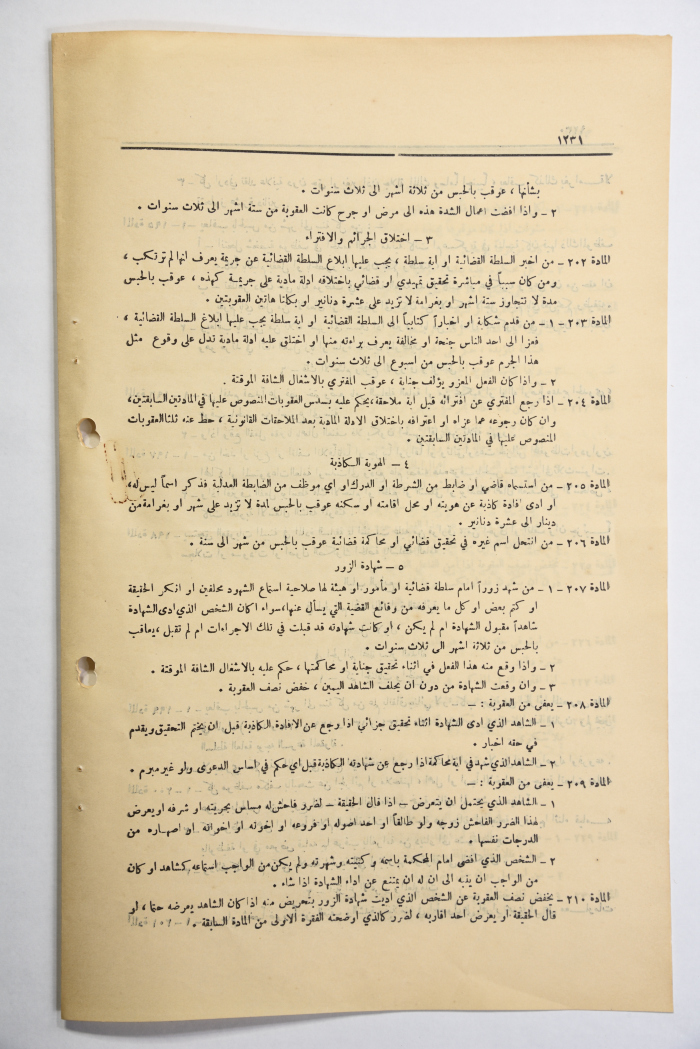 ١٢٣١
بشأنها ، عوقب بالحبس من ثلاثة اشهر الى ثلاث سنوات .
٢ – واذا افضت اعمال الشدة هذه الى مرض او جرح كانت العقوبة من ستة اشهر الى ثلاث سنوات .
٣ – اختلاق الجرائم والافتراء
المادة ٢٠٢ – من اخبر السلطة القضائية او اية سلطة ، يجب عليها ابلاغ السلطة القضائية عن جريمة يعرف انها لم ترتكب ،
ومن كان سبباً في مباشرة تحقيق تمهيدي او قضائي باختلاقه ادلة مادية على جريمة كهذه ، عوقب بالحبس
مدة لا تتجاوز ستة اشهر او بغرامة لا تزيد على عشرة دنانير او بكلتا هاتين العقوبتين .
المادة ٢٠٣ – ١ – من قدم شكاية او اخباراً كتابياً الى السلطة القضائية او اية سلطة يجب عليها ابلاغ السلطة القضائية ،
فعزا الى احد الناس جنحة او مخالفة يعرف براءته منها او اختلق عليه ادلة مادية تدل على وقوع مثل
هذا الجرم عوقب بالحبس من اسبوع الى ثلاث سنوات .
٢ – واذا كان الفعل المعزو يؤلف جناية ، عوقب المفتري بالاشغال الشاقة الموقتة .
المادة ٢٠٤ – اذا رجع المفتري عن افترائه قبل اية ملاحقة ، يحكم عليه بسدس العقوبات المنصوص عليها في المادتين السابقتين،
وان كان رجوعه عما عزاه او اعترافه باختلاق الادلة المادية بعد الملاحقات القانونية ، حط عنه ثلثا العقوبات
المنصوص عليها في المادتين السابقتين .
٤ – الهوية الكاذبة
المادة ٢٠٥ – من استسماه قاضي او ضابط من الشرطة او الدرك او اي موظف من الضابطة العدلية فذكر اسماً ليس له،
او ادى افادة كاذبة عن هويته او محل اقامته او سكنه عوقب بالحبس لمدة لا تزيد على شهر او بغرامة من
دينار الى عشرة دنانير .
المادة ٢٠٦ – من انتحل اسم غيره في تحقيق قضائي او محاكمة قضائية عوقب بالحبس من شهر الى سنة .
٥ – شهادة الزور
المادة ٢٠٧ – ١ – من شهد زوراً امام سلطة قضائية او مأمور او هيئة لها صلاحية استماع الشهود محلفين او انكر الحقيقة
او كتم بعض او كل ما يعرفه من وقائع القضية التي يسأل عنها، سواء اكان الشخص الذي ادى الشهادة
شاهداً مقبول الشهادة ام لم يكن ، او كانت شهادته قد قبلت في تلك الاجراءات ام لم تقبل ، يعاقب
بالحبس من ثلاثة اشهر الى ثلاث سنوات .
٢ – واذا وقع منه هذا الفعل في اثناء تحقيق جناية او محاكمتها ، حكم عليه بالاشغال الشاقة الموقتة .
٣ – وان وقعت الشهادة من دون ان يحلف الشاهد اليمين ، خفض نصف العقوبة .
المادة ٢٠٨ – يعفى من العقوبة : –
١ – الشاهد الذي ادى الشهادة اثناء تحقيق جزائي اذا رجع عن الافادة الكاذبة قبل ان يختم التحقيق ويقدم
في حقه اخبار .
٢ – الشاهد الذي شهد في اية محاكمة اذا رجع عن شهادته الكاذبة قبل اي حكم في اساس الدعوى ولو غير مبرم .
المادة ٢٠٩ – يعفى من العقوبة : –
١ – الشاهد الذي يحتمل ان يتعرض – اذا قال الحقيقة – لضرر فاحش له مساس بحريته او شرفه او يعرض
لهذا الضرر الفاحش زوجه ولو طالقاً او احد اصوله او فروعه او اخوته او اخواته او اصهاره من
الدرجات نفسها .
٢ – الشخص الذي افضى امام المحكمة باسمه وكنيته وشهرته ولم يكن من الواجب استماعه كشاهد او كان
من الواجب ان ينبه الى ان له ان يمتنع عن اداء الشهادة اذا شاء .
المادة ٢١٠ – يخفض نصف العقوبة عن الشخص الذي اديت شهادة الزور بتحريض منه اذا كان الشاهد يعرضه حتما ، لو
قال الحقيقة او يعرض احد اقاربه ، لضرر كالذي اوضحته الفقرة الاولى من المادة السابقة .